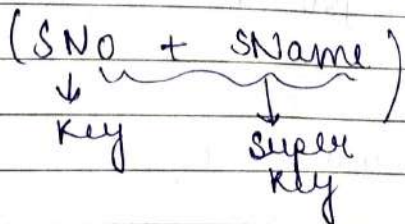 (SNo + SName)
↓ ↓
Key Super
Key